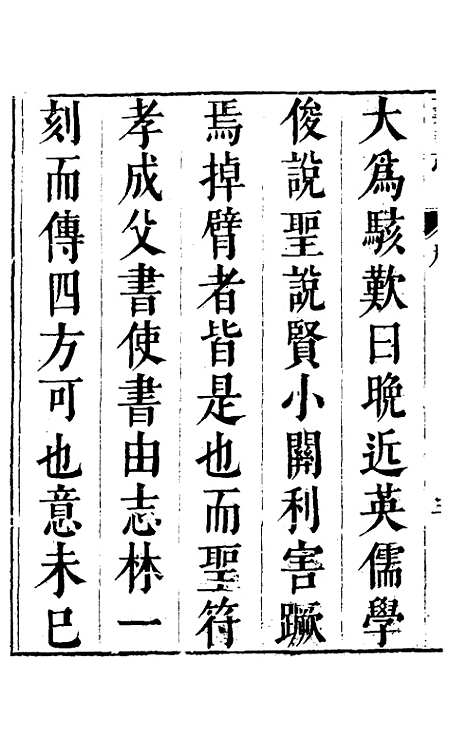 大爲駭歎曰晩近英儒學
俊說聖說賢小關利害蹶
焉掉臂者皆是也而聖符
孝成父書使書由志林一
刻而傳四方可也意未巳